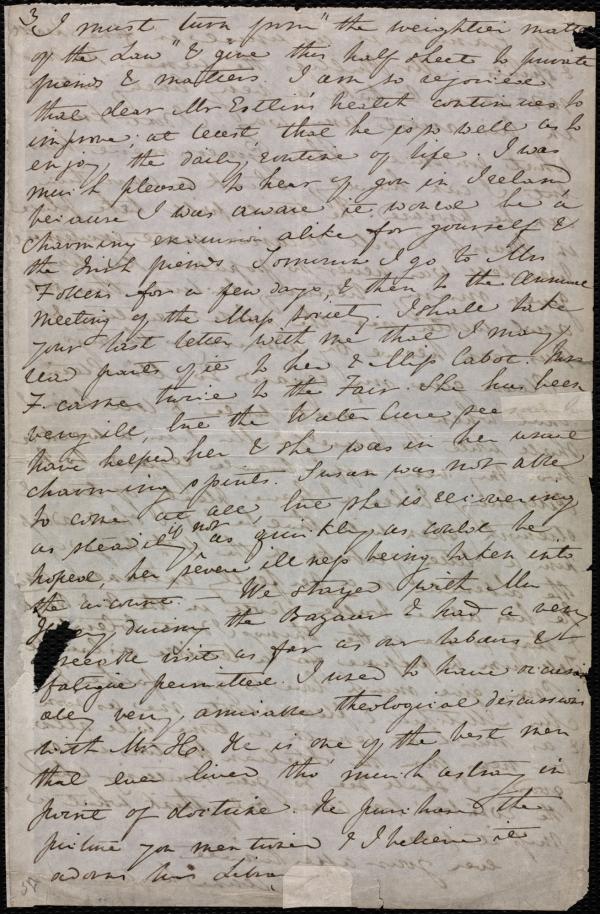 3
I must turn from "the weightier matters
of the Law" & give this half sheet to private
friends & matters. I am so rejoiced
that dear Mr Estlin's health continues to
improve; at least that he is so well as to
enjoy the daily routine of life. I was
much pleased to hear of you in Ireland
because I was aware it would be a
charming excursion alike for yourself &
the Irish friends. Tomorrow I go to Mrs
Follen's for a few days, & then to the Annual
Meeting of the Mass Society. I shall take
your last letter with me that I may
read parts of it to her & Miss Cabot. Mrs
F. came twice to the Fair. She has been
very ill, but the Water Cure seems
have helped her & she was in her usual
charming spirits. Susan was not able
to come at all, but she is recovering
as steadily, if not as quickly as could be
hoped, her severe illness being taken into
the account. — We stayed with Mr
during the Bazaar & had a very
visit as far as our labours &
fatigue permitted. I used to have occasion
ally very amicable theological discussions
with Mr H. He is one of the best men
that ever lived tho' much astray in
point of doctrine. He purchased the
picture you mentioned & I believe it
adorns his Libra